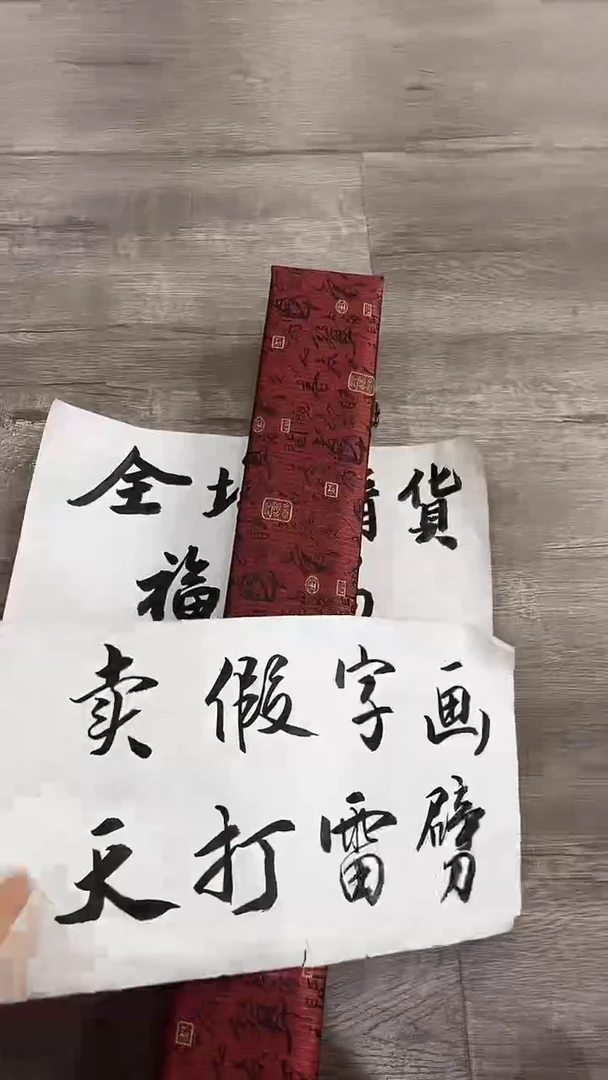 全 貨
福
卖假字画
天打雷劈